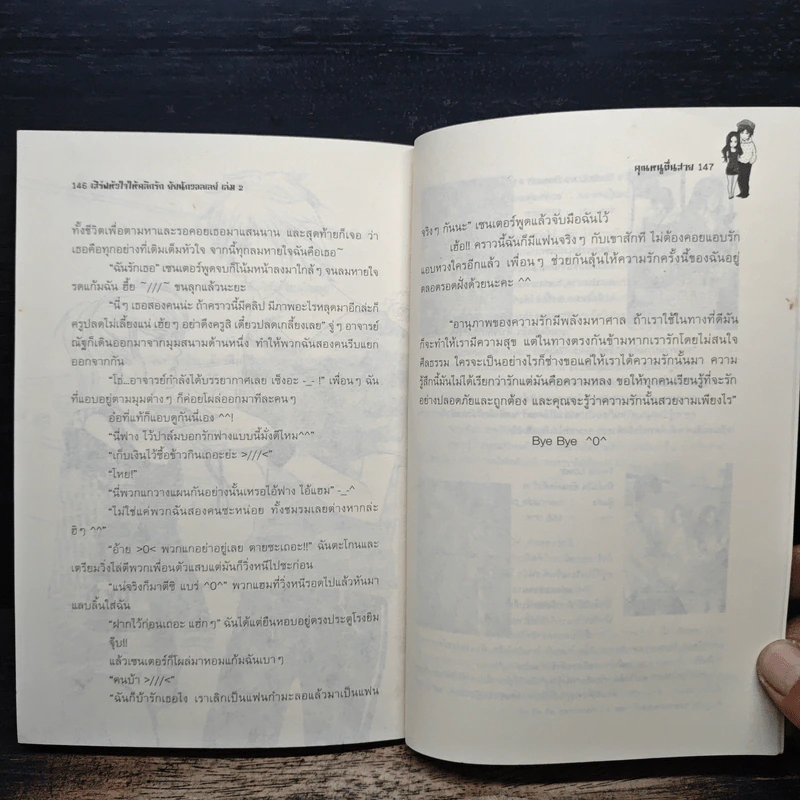 146 เสิร์ฟหัวใจให้คลิกรัก
เล่ม 2
ทั้งชีวิตเพื่อตามหาและรอคอยเธอมาแสนนาน และสุดท้ายก็เจอ ว่า
เธอคือทุกอย่างที่เติมเต็มหัวใจ จากนี้ทุกลมหายใจฉันคือเธอ~
"ฉันรักเธอ" เซนเตอร์พูดจบก็โน้มหน้าลงมาใกล้ๆ จนลมหายใจ
รดแก้มฉัน ฮึ้ย ~///~ ขนลุกแล้วนะยะ
"นี่ๆ เธอสองคนน่ะ ถ้าคราวนี้มีคลิป มีภาพอะไรหลุดมาอีกล่ะก็
ครูปลดไม่เลี้ยงแน่ เฮ้ยๆ อย่าดึงครูสิ เดี๋ยวปลดเกลี้ยงเลย" จู่ๆ อาจารย์
ณัฐก็เดินออกมาจากมุมสนามด้านหนึ่ง ทำให้พวกฉันสองคนรีบแยก
ออกจากกัน
"โธ่...อาจารย์กำลังได้บรรยากาศเลย เซ็งอะ -_- !" เพื่อนๆ ฉัน
ที่แอบอยู่ตามมุมต่างๆ ก็ค่อยโผล่ออกมาทีละคนๆ
อ๋อที่แท้ก็แอบดูกันนี่เอง ^^!
"นี่ฟาง ไว้ปาล์มบอกรักฟางแบบนี้มั่งดีไหม^^"
"เก็บเงินไว้ซื้อข้าวกินเถอะย่ะ >///<"
"โหย!"
"นี่พวกแกวางแผนกันอย่างนั้นเหรอไอ้ฟาง ไอ้แฮม" -_-^
"ไม่ใช่แค่พวกฉันสองคนซะหน่อย ทั้งชมรมเลยต่างหากล่ะ
ฮิๆ ^^"
"อ้าย >0< พวกแกอย่าอยู่เลย ตายซะเถอะ!!" ฉันตะโกนและ
เตรียมวิ่งไล่ตีพวกเพื่อนตัวแสบแต่มันก็วิ่งหนีไปซะก่อน
"แน่จริงก็มาตีซิ แบร่ ^0^" พวกแฮมที่วิ่งหนีรอดไปแล้วหันมา
แลบลิ้นใส่ฉัน
"ฝากไว้ก่อนเถอะ แฮ่กๆ" ฉันได้แต่ยืนหอบอยู่ตรงประตูโรงยิม
จุ๊บ!!
แล้วเซนเตอร์ก็โผล่มาหอมแก้มฉันเบาๆ
"คนบ้า >///<"
"ฉันก็บ้ารักเธอไง เราเลิกเป็นแฟนกำมะลอแล้วมาเป็นแฟน
คุณหนูตื่นสาย 147
จริงๆ กันนะ" เซนเตอร์พูดแล้วจับมือฉันไว้
เฮ้อ!! คราวนี้ฉันก็มีแฟนจริงๆ กับเขาสักที ไม่ต้องคอยแอบรัก
แอบหวงใครอีกแล้ว เพื่อนๆ ช่วยกันลุ้นให้ความรักครั้งนี้ของฉันอยู่
ตลอดรอดฝั่งด้วยนะคะ ^^
"อานุภาพของความรักมีพลังมหาศาล ถ้าเราใช้ในทางที่ดีมัน
ก็จะทำให้เรามีความสุข แต่ในทางตรงกันข้ามหากเรารักโดยไม่สนใจ
ศีลธรรม ใครจะเป็นอย่างไรก็ช่างขอแค่ให้เราได้ความรักนั้นมา ความ
รู้สึกนี้มันไม่ได้เรียกว่ารักแต่มันคือความหลง ขอให้ทุกคนเรียนรู้ที่จะรัก
อย่างปลอดภัยและถูกต้อง และคุณจะรู้ว่าความรักนั้นสวยงามเพียงไร"
Bye Bye ^0^